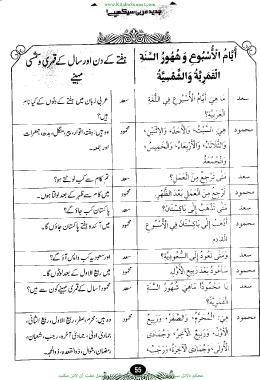 www.KitaboSunnat.com
جدید عربی سیکھیے
أَيَّامُ الْأُسْبُوعِ وَ شُهُورُ السَّنَةِ
الْقَمَرِيَّةِ وَالشَّمْسِيَّةِ
ہفتے کے دن اور سال کے قمری و شمسی
مہینے
سعد
مَا هِيَ أَيَّامُ الْأُسْبُوعِ فِي اللُّغَةِ
الْعَرَبِيَّةِ؟
سعد
عربی زبان میں ہفتے کے دنوں کے کیا نام
ہیں؟
محمود
هِيَ: السَّبْتُ، وَالْأَحَدُ، وَالْاِثْنَيْنِ،
وَالثُّلَاثَاءُ، وَالْأَرْبِعَاءُ، وَالْخَمِيسُ،
وَالْجُمُعَةُ
محمود
وہ ہیں: ہفتہ، اتوار، پیر، منگل، بدھ، جمعرات
اور جمعہ۔
سعد
مَتٰى تَرْجِعُ مِنَ الْعَمَلِ؟
سعد
تم کام سے کب لوٹتے ہو؟
محمود
نَرْجِعُ مِنَ الْعَمَلِ بَعْدَ الظُّهْرِ.
محمود
میں کام سے ظہر کے بعد لوٹتا ہوں۔
سعد
مَتٰى تَذْهَبُ إِلٰى بَاكِسْتَانَ؟
سعد
پاکستان کب جاؤ گے؟
محمود
أَذْهَبُ إِلٰى بَاكِسْتَانَ فِي الْأُسْبُوعِ
الْقَادِمِ
محمود
میں آئندہ ہفتے پاکستان جاؤں گا۔
سعد
وَمَتٰى تَعُودُ إِلَى السُّعُودِيَّةِ؟
سعد
اور سعودیہ کب واپس آؤ گے؟
محمود
سَأَعُودُ بَعْدَ رَبِيعِ الْأَوَّلِ.
محمود
میں ربیع الاول کے بعد لوٹوں گا۔
سعد
يَا مَحْمُودُ! مَا هِيَ شُهُورُ السَّنَةِ
الْقَمَرِيَّةِ؟
سعد
محمود! سال کے قمری مہینے کون سے ہیں؟
محمود
هِيَ: الْمُحَرَّمُ، وَالصَّفَرُ، وَرَبِيعُ
الْأَوَّلِ، وَرَبِيعُ الْآخِرِ، وَجُمَادَى
الْأُولٰى، وَجُمَادَى الْآخِرَةِ، وَرَجَبُ،
محمود
وہ ہیں: محرم، صفر، ربیع الاول، ربیع الثانی،
جمادی اولی، جمادی آخرہ، رجب، شعبان،
رمضان، شوال، ذوالقعدہ، ذوالحجہ۔
55